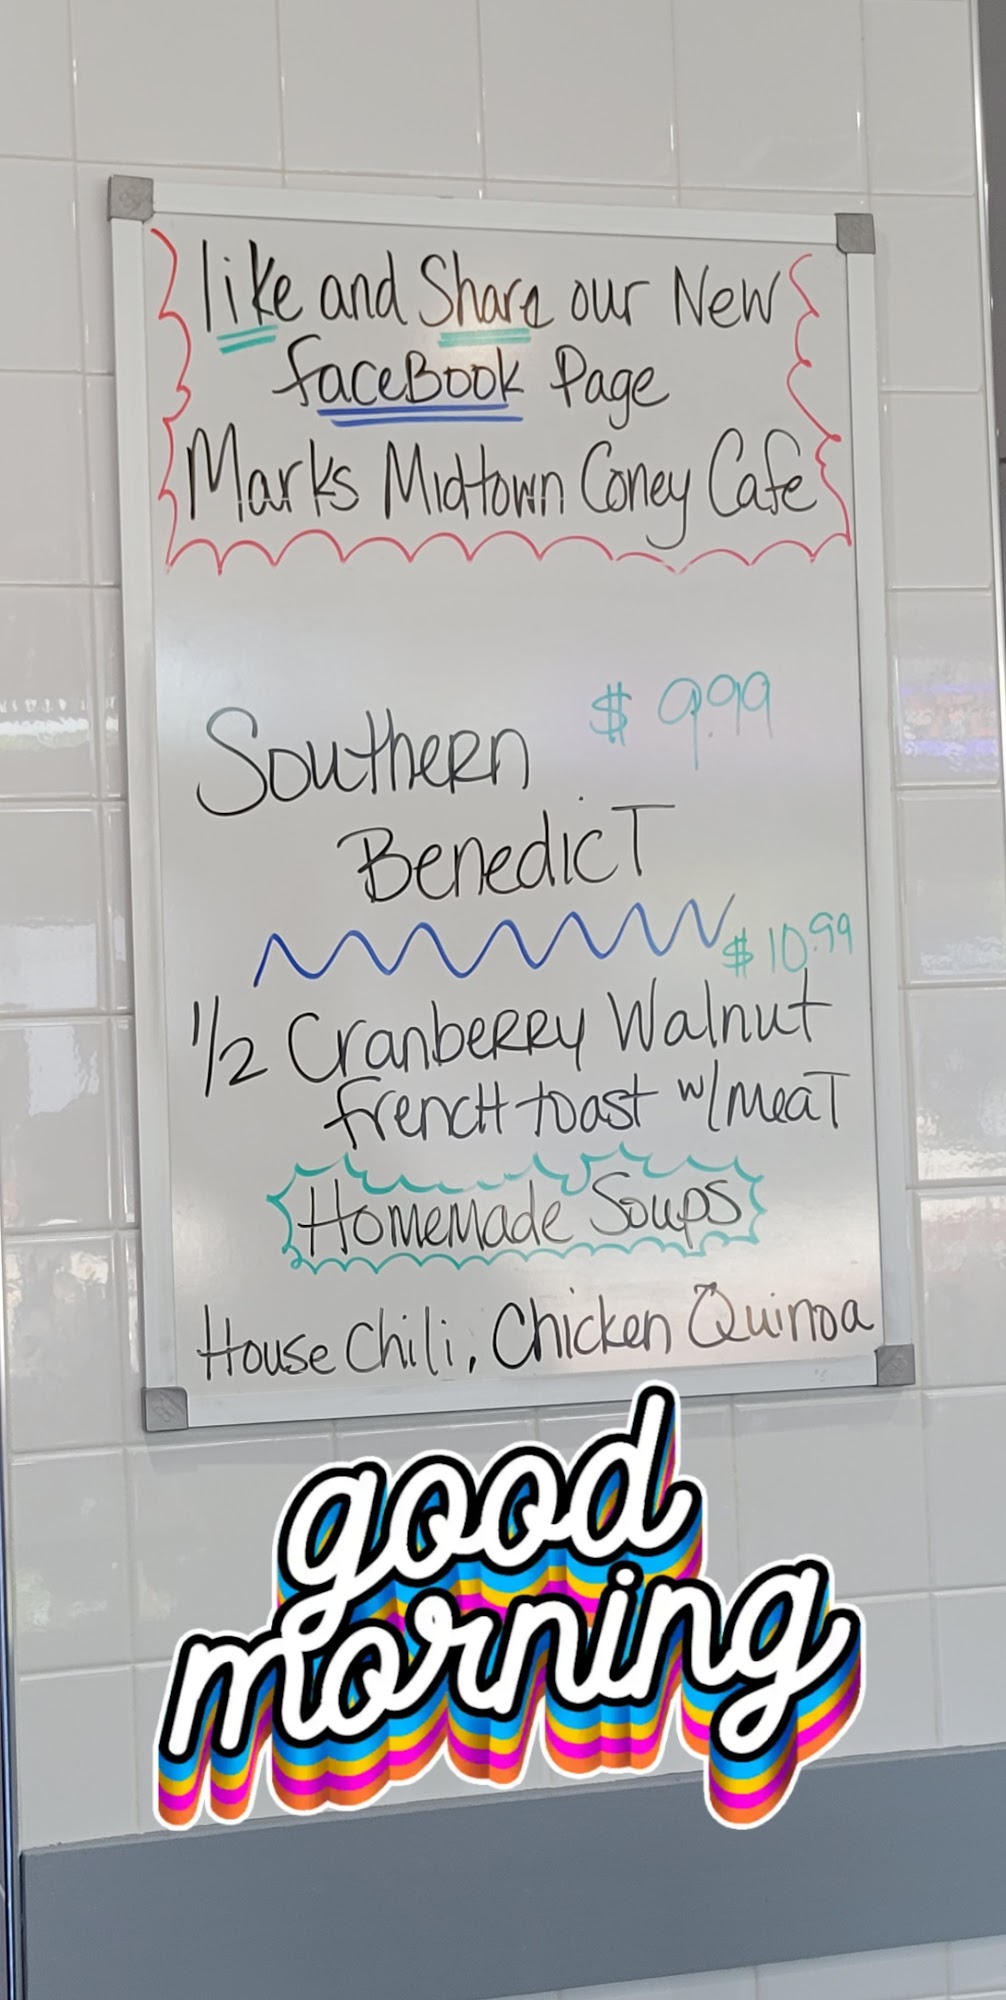 like and Share our New
faceBook Page
Marks Midtown Coney Cafe
Southern $ 9.99
BenedicT
$ 10.99
1/2 CranbeRRy Walnut
frencH toast w/meaT
Homemade Soups
House Chili, Chicken Quinoa
good
morning